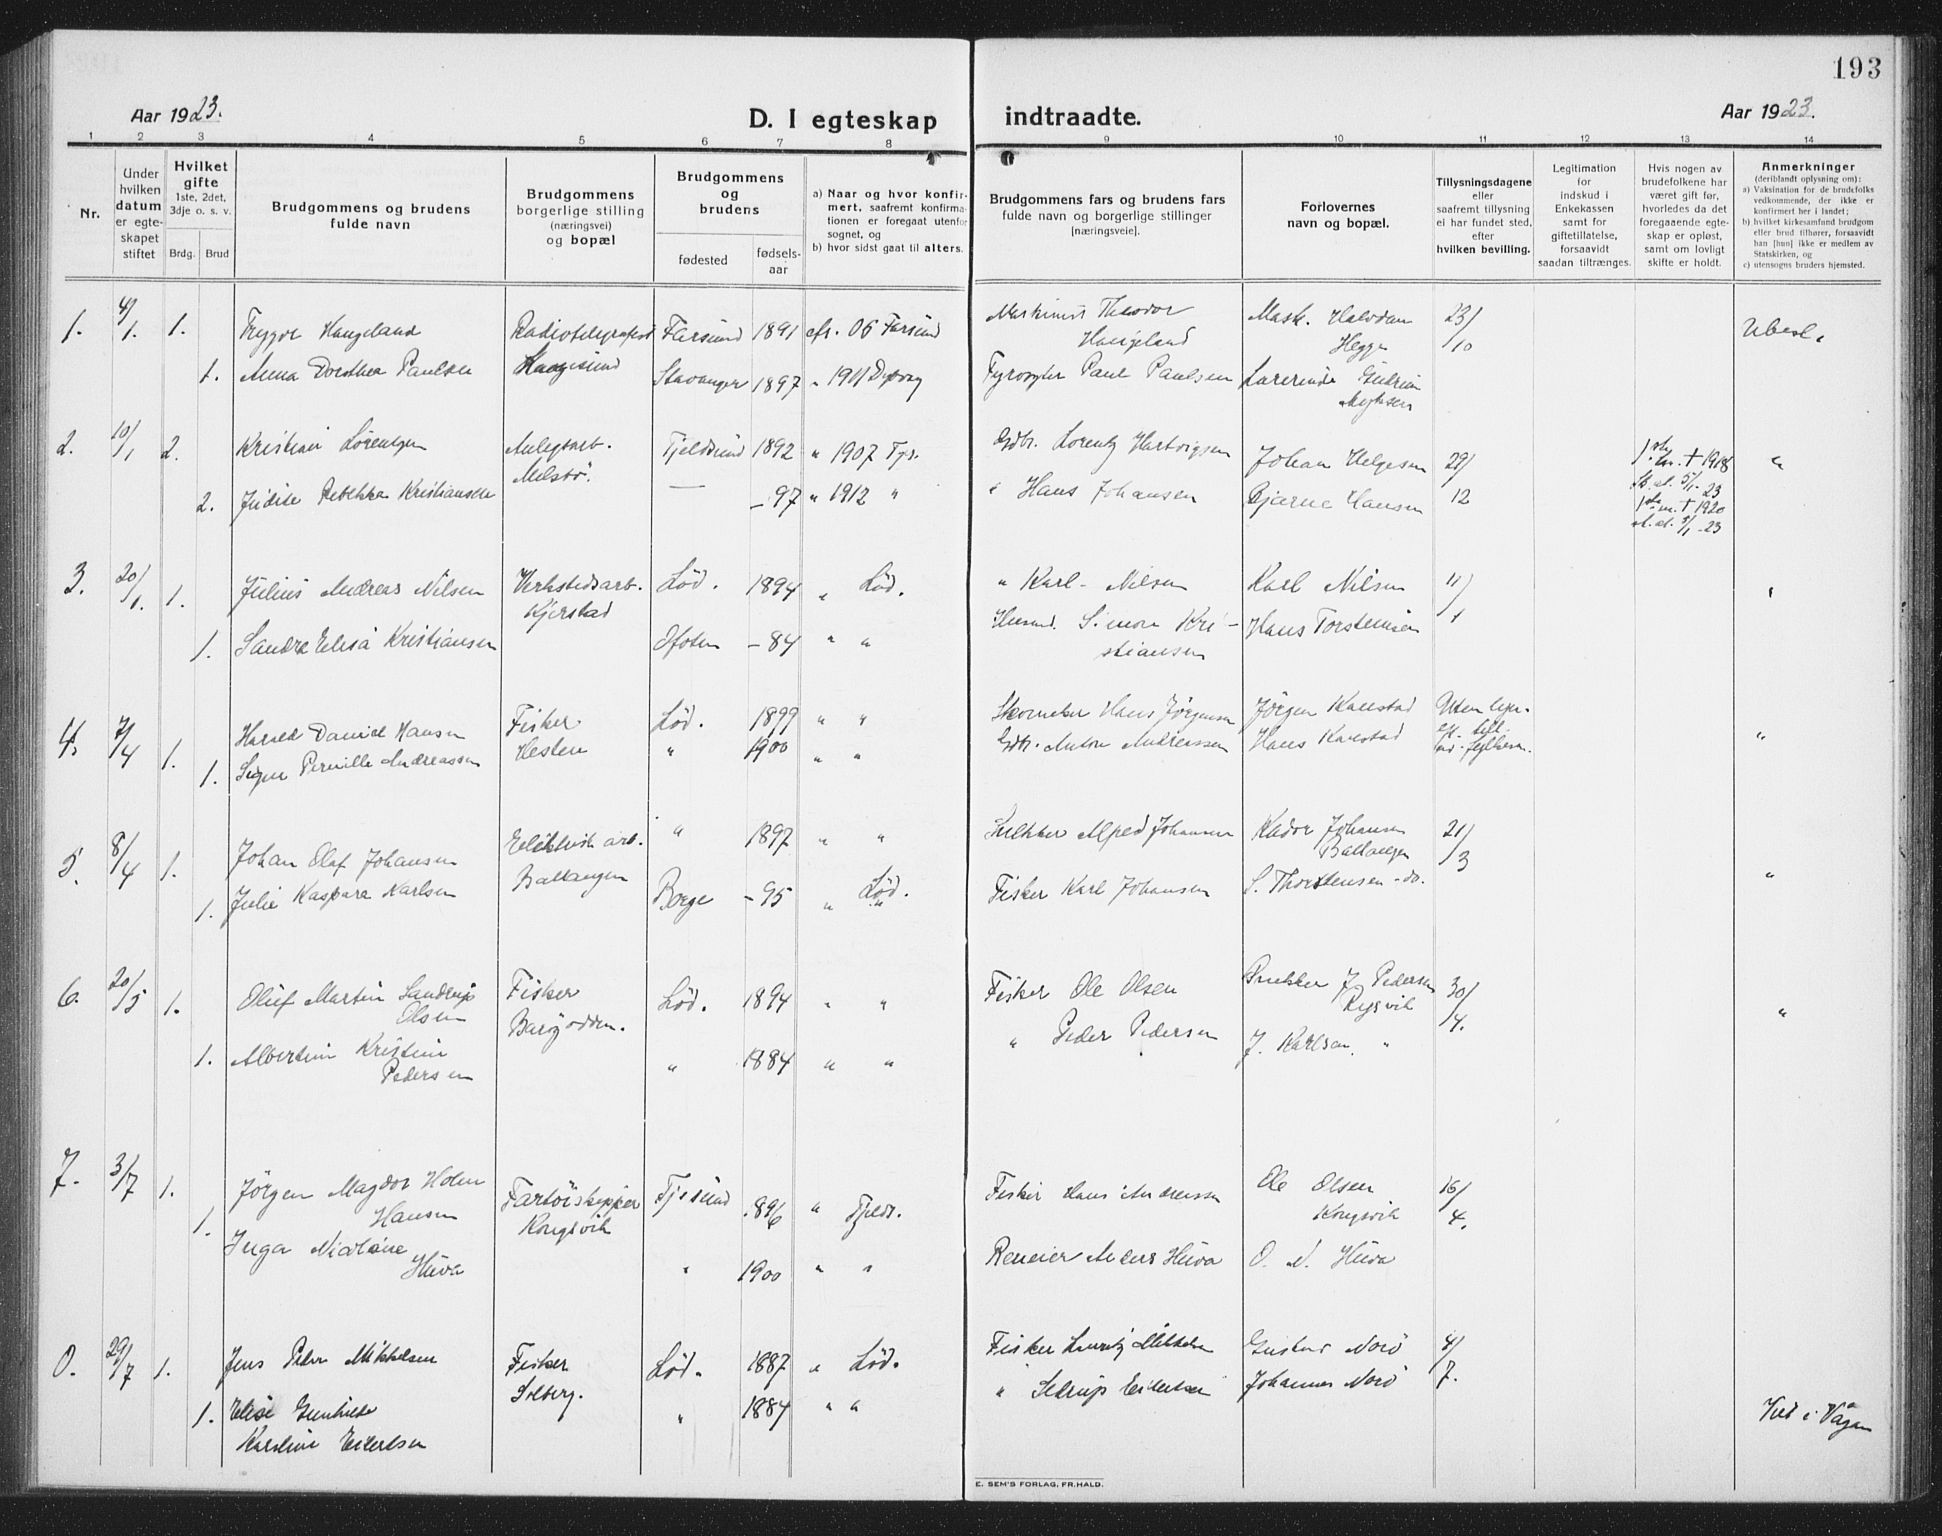 193
Aar 1923.
D. I egteskap
indtraadte.
Aar 1923.
1 2 3 4 5 6 7 8 9 10 11 12 13 14
Nr.
Under hvilken datum er egteskapet stiftet
Hvilket gifte 1ste, 2det, 3dje o. s. v.
Brdg. Brud
Brudgommens og brudens fulde navn
Brudgommens borgerlige stilling (næringsvei) og bopæl
Brudgommens og brudens
fødested
fødsels-aar
a) Naar og hvor konfir-
mert, saafremt konfirma-
tionen er foregaat utenfor
sognet, og
b) hvor sidst gaat til alters.
Brudgommens fars og brudens fars
fulde navn og borgerlige stillinger
[næringsveie].
Forlovernes
navn og bopæl.
Tillysningsdagene
eller
saafremt tillysning
ei har fundet sted,
efter
hvilken bevilling.
Legitimation
for
indskud i
Enkekassen
samt for
giftetillatelse,
forsaavidt
saadan tiltrænges.
Hvis nogen av
brudefolkene har
været gift før,
hvorledes da det
foregaaende egte-
skap er opløst,
samt om lovligt
skifte er holdt.
Anmerkninger
(deriblandt oplysning om):
a) Vaksination for de brudefolks
vedkommende, der ikke er
konfirmert her i landet;
b) hvilket kirkesamfund brudgom
eller brud tilhører, forsaavidt
han [hun] ikke er medlem av
Statskirken, og
c) utensogns bruders hjemsted.
1. 4/1. 1. Trygve Haugeland Radiotelegrafist Farsund 1891 06 Farsund Maskinist Theodor Haugeland Mask. Halvdan Hegge 23/10 Ubesl.
1. Anna Dorothea Paulsen Haugesund Stavanger 1897 " 1911 Dypvag Fyrvogter Paul Paulsen Lærerinde Gudrun
2. 10/1 2. Kristian Lorentzen Anlegsarb. Tjeldsund 1892 " 1907 Tjs. Gdbr. Lorentz Hartvigsen Johan Helgesen 29/12 † 1918 "
2. Judite Rebekka Kristiansen — – 97 " 1912 " " Hans Johansen Bjarne Hansen † 1920
3. 20/1. 1. Julius Andreas Nilsen Verkstedsarb. Kjerstad Lød. 1894 " Lød. " Karl Nilsen Karl Nilsen 11/1 "
1. Sandra Elisa Kristiansen Ofoten – 84 " " Husmd. Simon Kri-
stiansen Hans Torstensen
4. 7/4 1. Harald Daniel Hansen Fisker Lød. 1899 " " Skomaker Hans Jørgensen Jørgen Kanstad "
1. Signe Pernille Andreassen Hesten " 1900 " " Gdbr. Anton Andreassen Hans Kanstad
5. 8/4 1. Johan Olaf Johansen Elektrisk arb. " 1897 " " Snekker Alfred Johansen Kador Johansen Ballangen 21/3 "
1. Julie Kaspara Karlsen Ballangen Borge – 95 " Lød. Fisker Karl Johansen S. Thorstensen – do.
6. 20/5 1. Oluf Martin Sandrup Olsen Fisker Lød. 1894 " " Fisker Ole Olsen Snekker J. Pedersen 30/4. "
1. Albertine Kristine Pedersen Barøyodden. " 1884 " " " Peder Pedersen J. Karlsen "
7. 3/7 1. Jörgen Magdor Holm Hansen Fartöiskipper Kongsvik Tjssund 1896 " Tjelds. Fisker Hans Andreassen Ole Olsen Kongsvik 16/4.
1. Inga Nicoline Huva " 1900 " " Anders Huva O. N. Huva
29/7 1. Jens Peder Mikkelsen Fisker Lød. 1887 " Lød. Fisker Mikkelsen Gustav Norö 4/7.
1. Elise Gunhilde Karoline Eilertsen Solberg. " 1884 " " " Sedrup Eilertsen Johannes Norö Viet i Vågan
E. SEM'S FORLAG, FR.HALD.